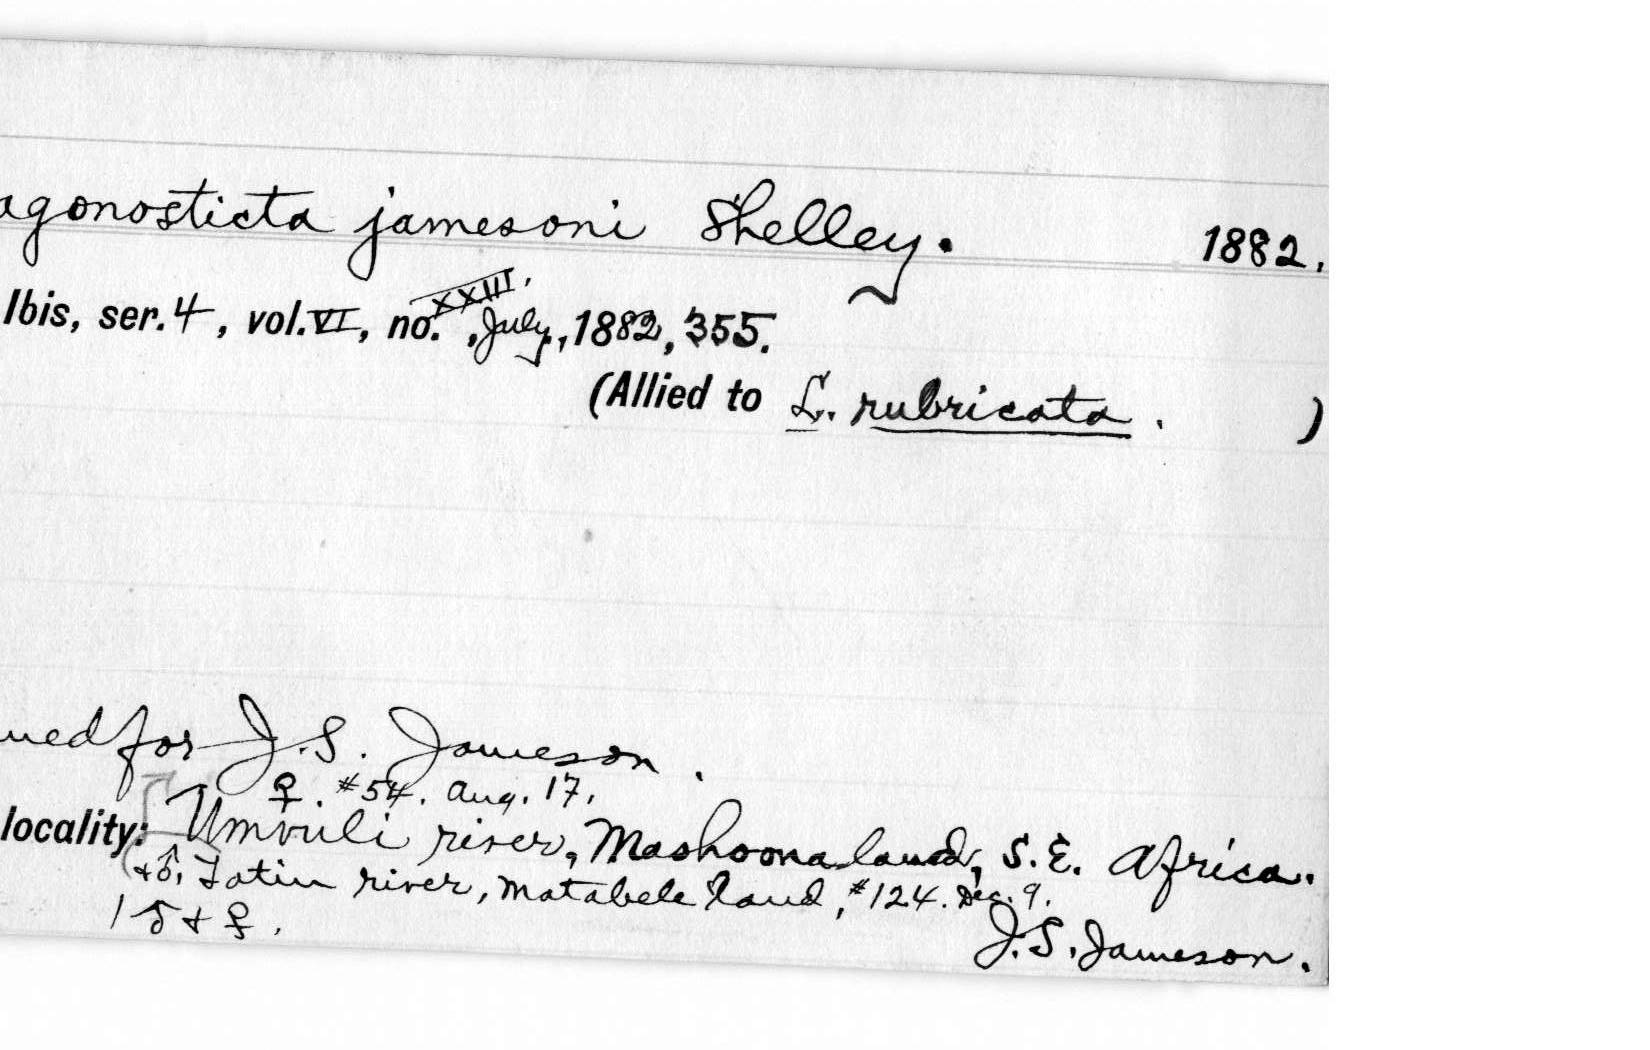 agonosticta jamesoni Shelley. 1882.
Ibis, ser. 4, vol. VI, no. XXIII, July, 1882, 355.
(Allied to L. rubricata. )
med for J.S. Jameson.
♀. #54. Aug. 17.
locality: Umvuli river, Mashoona land, S.E. Africa.
+♂, Tatin river, Matabele land, #124. Dec. 9.
1 ♂ + ♀.
J.S. Jameson.